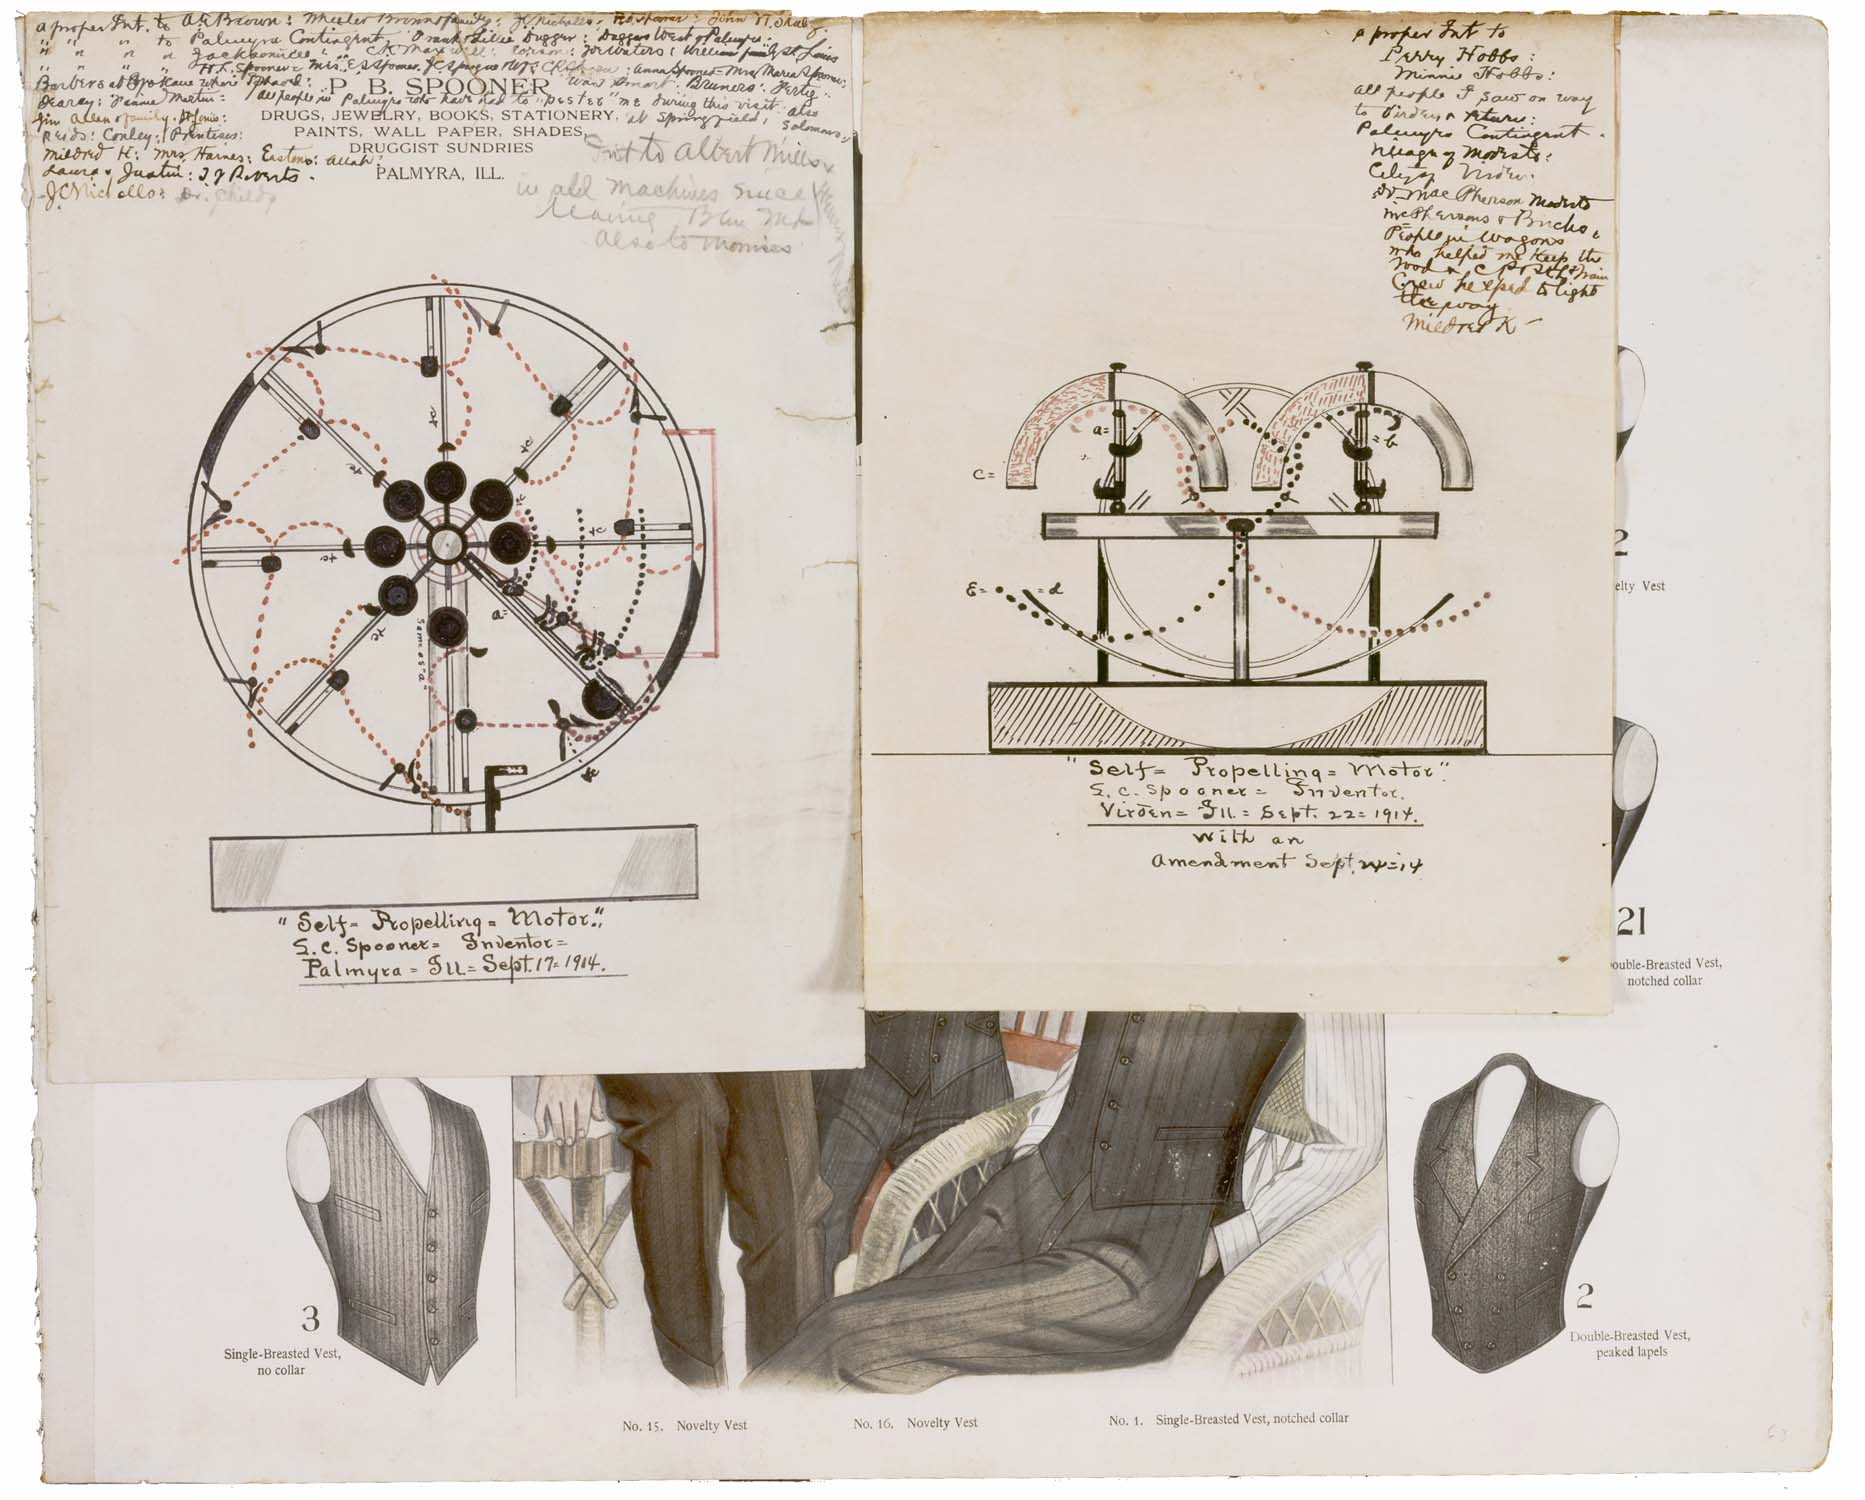 a proper Int. to A. E. Brown: Wheeler Brown & family: J C Nicholls: P.B. Spooner: John N.
" " " to Palmyra Contingent, & Lillie Dugger: Duggers West of Palmyra:
" " " " Jacksonville: C.K. Maxwell: : Joe Waters: William family St. Louis
" " " " H.L. Spooner: Mrs. E S Spooner, J C Sprague : Anna Spooner = Mrs. Maria Sparrow:
Barbers at Spokane where I phaved: Wm Smart: Bruners: Fertig
Dearcy: Fannie Martin = All people in Palmyra who have had to "pester" me during this visit. also
Jim Allen & family. St Louis: at Springfield, Solomons,
Reids: Conley: Printises:
Mildred K: Mrs. Haines: Eastons: allah:
Laura & Justin: T J Riverts.
J C Nicholls: Dr. Childs
P. B. SPOONER
DRUGS, JEWELRY, BOOKS, STATIONERY,
PAINTS, WALL PAPER, SHADES,
DRUGGIST SUNDRIES
PALMYRA, ILL.
Int to Albert Mills
in all machines since
leaving Blue Md
also to Monises
+c
+c
+c
+c
+c
+c
+c
+c
a=
Same as "a"
"Self= Propelling= Motor".
S. C. Spooner= Inventor=
Palmyra= Ill= Sept. 17= 1914.
a proper Int to
Perry Hobbs:
Minnie Hobbs:
all people I saw on way
to Virden & return:
Palmyra Contingent.
Village of Modesto:
City of Virden:
Dr. Mac Pherson Modesto
McPhersons & Bricks,
People in Wagons
who helped me keep the
road & Train
Crew helped to light
the way
Mildred K
a=
=b
C=
E=
=d
"Self= Propelling= Motor".
S. C. Spooner= Inventor.
Virden= Ill.= Sept. 22= 1914.
With an
Amendment Sept.
2
elty Vest
21
ouble-Breasted Vest,
notched collar
3
Single-Breasted Vest,
no collar
2
Double-Breasted Vest,
peaked lapels
No. 15. Novelty Vest
No. 16. Novelty Vest
No. 1. Single-Breasted Vest, notched collar